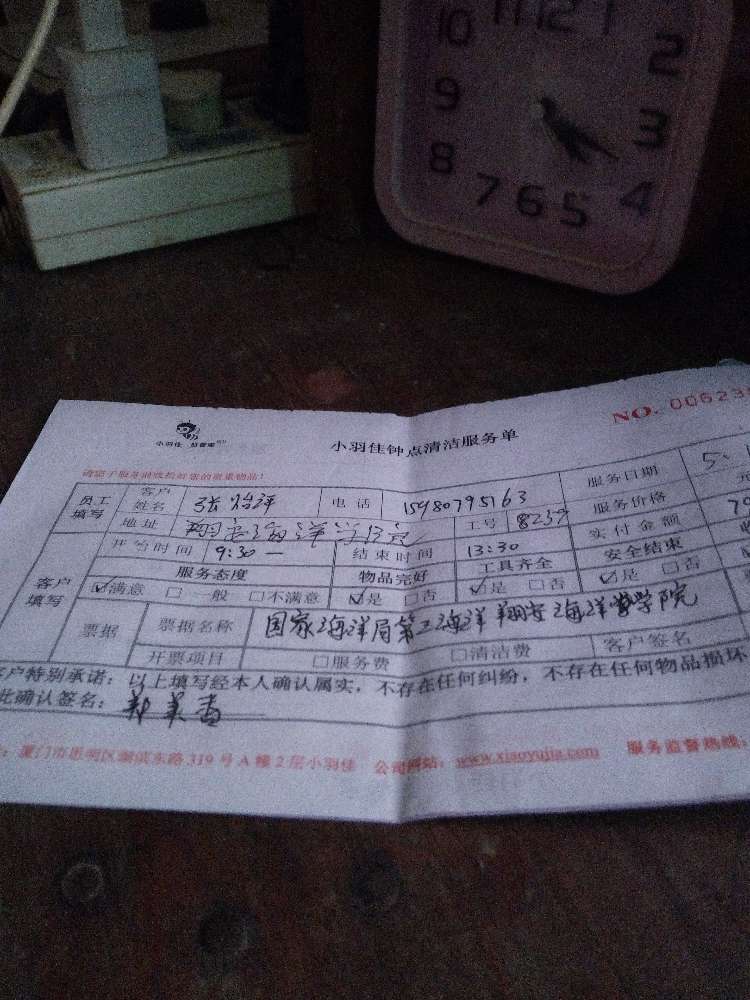 10 11 12 1
9 2
8 3
7 6 5 4
小羽佳
NO. 00623
小羽佳钟点清洁服务单
员工填写 客户姓名 张怡评 电话 15980795163 服务日期 5、
地址 工号 8239 服务价格
开始时间 9:30 — 结束时间 13:30 实付金额
客户填写 服务态度 物品完好 工具齐全 安全结束
☑满意 □一般 □不满意 ☑是 □否 ☑是 □否 ☑是 □否
票据 票据名称 国家海洋局第三海洋 翔安海洋 学院
开票项目 □服务费 □清洁费 客户签名
客户特别承诺：以上填写经本人确认属实，不存在任何纠纷，不存在任何物品损坏
此确认签名：郑美香
厦门市思明区湖滨东路319号A幢2层小羽佳 公司网站：www.xiaoyujia.com 服务监督热线：